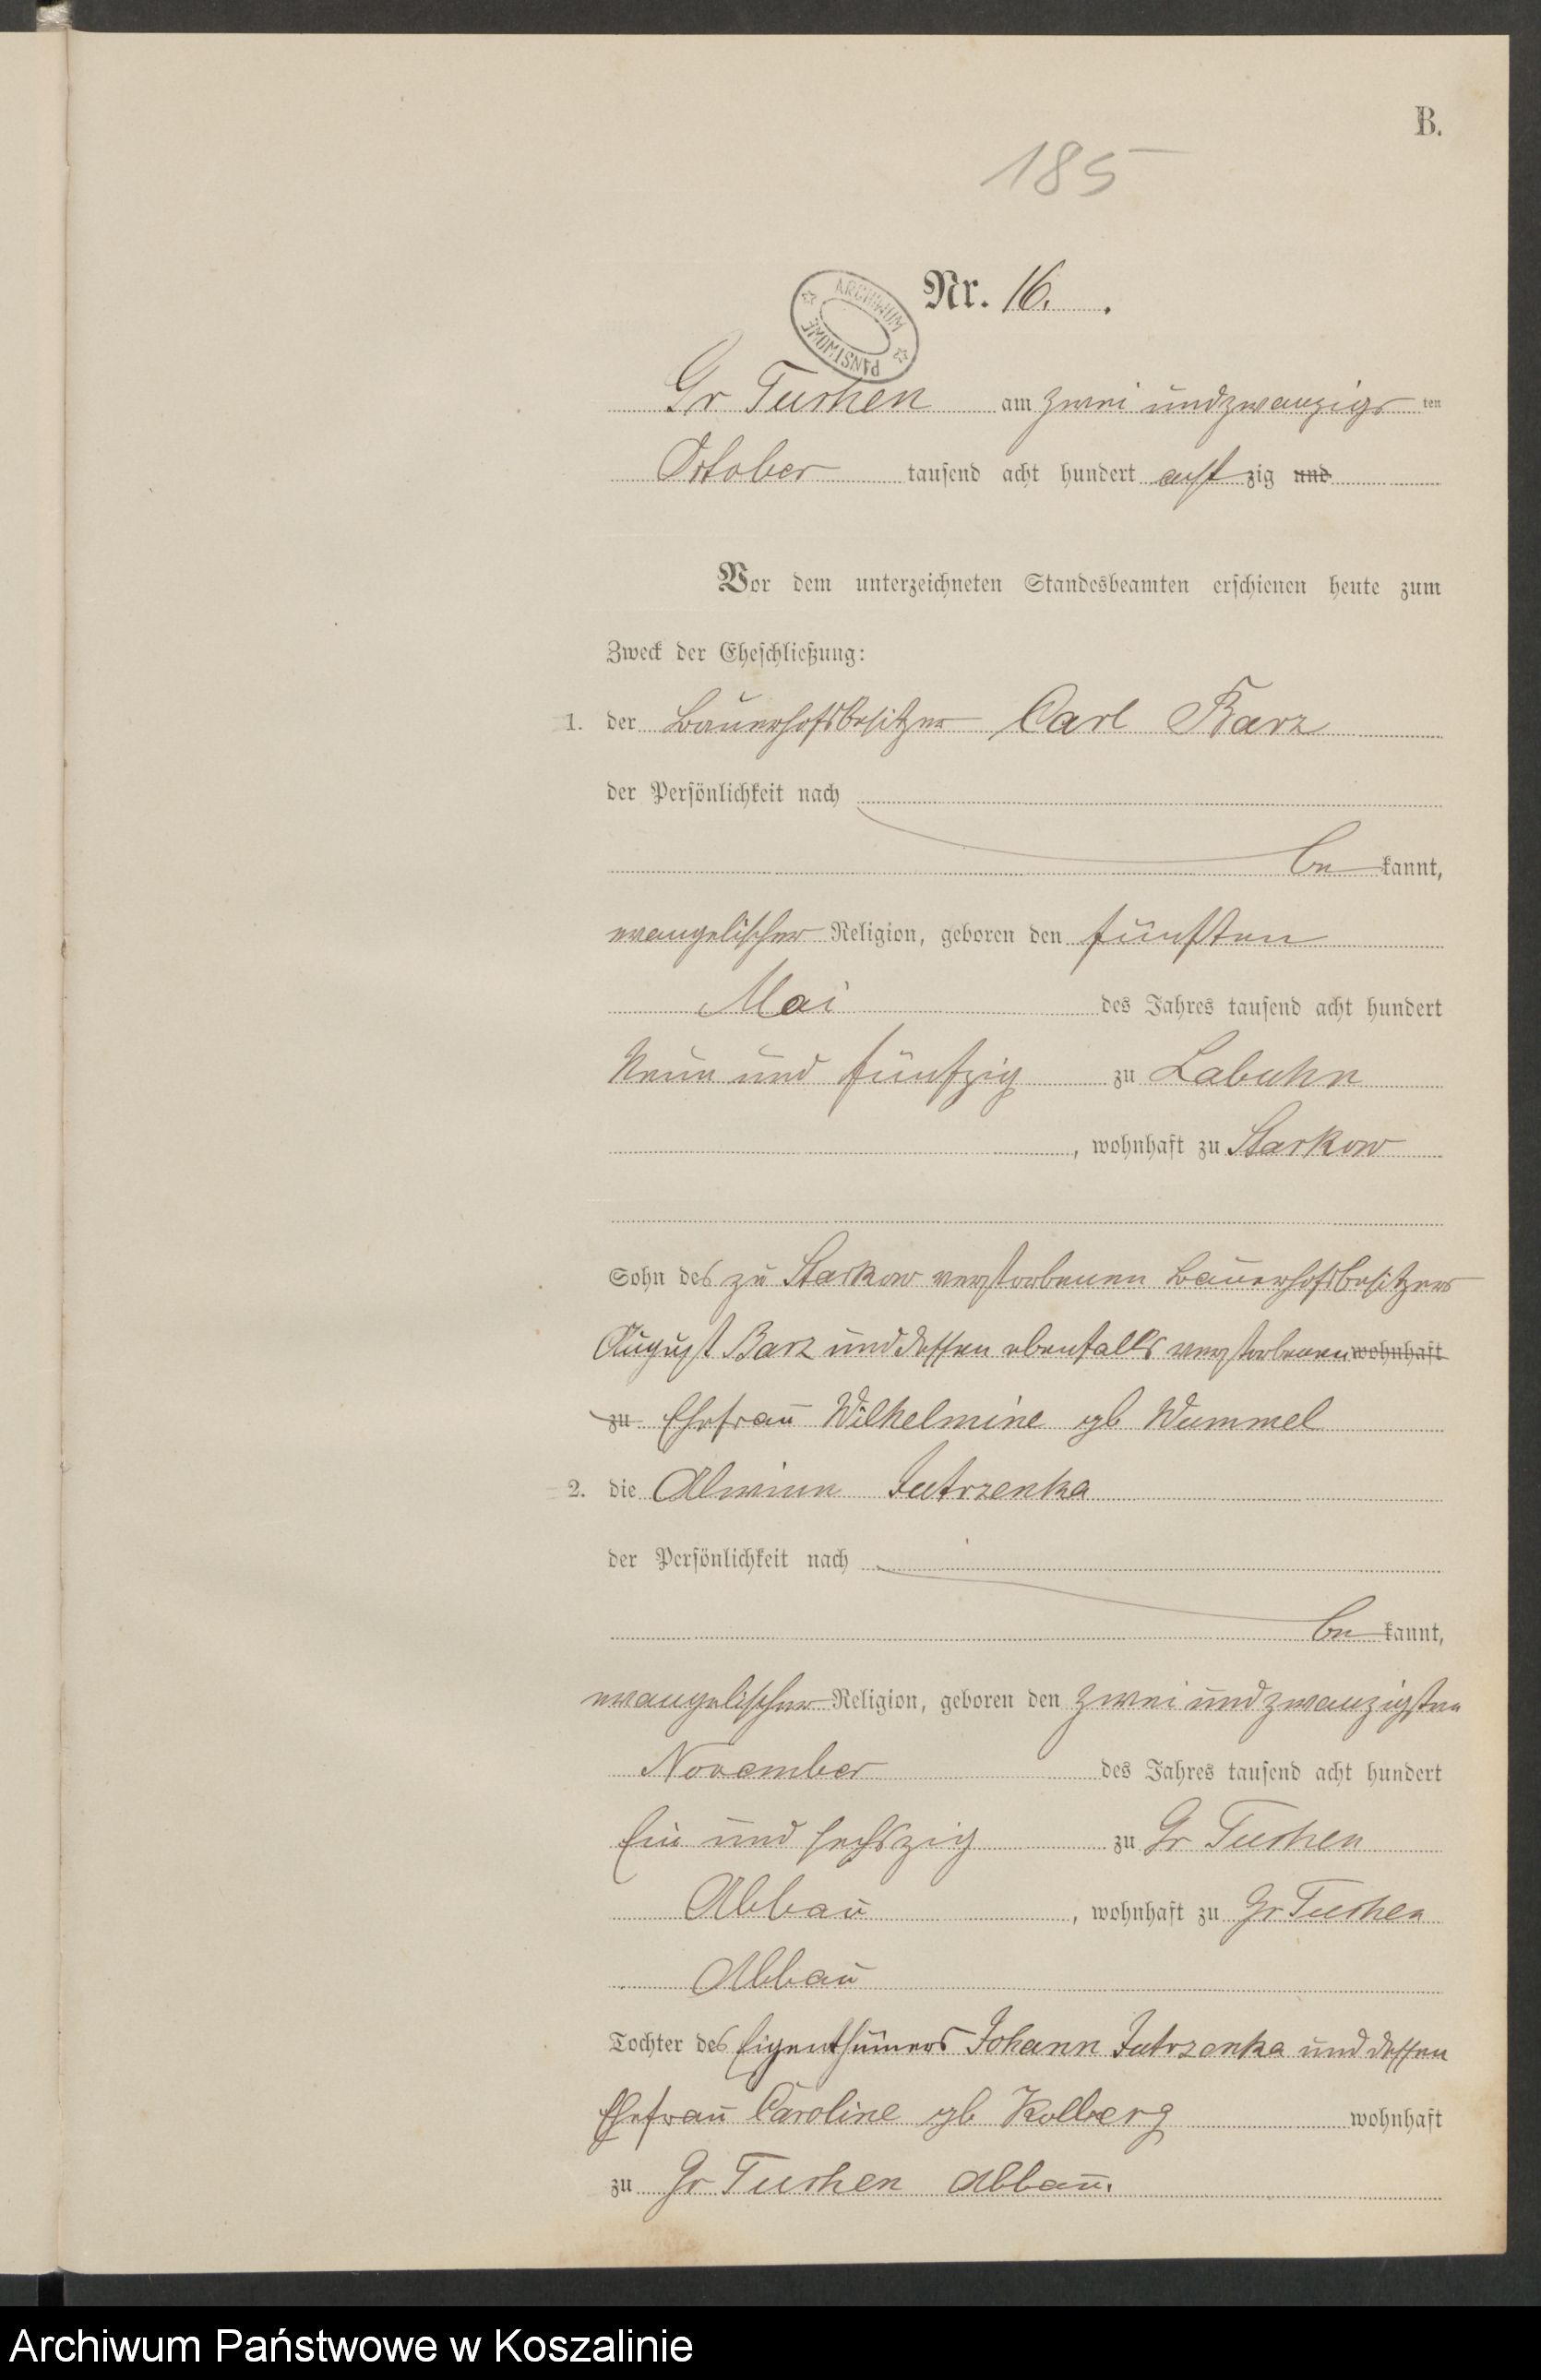 B.
185
Nr. 16.
ARCHIWUM PAŃSTWOWE
Gr Tuchen am zwei und zwanzigsten
October tausend acht hundert achtzig und
Vor dem unterzeichneten Standesbeamten erschienen heute zum
Zweck der Eheschließung:
1. der Bauerhofsbesitzer Carl Barz
der Persönlichkeit nach
bekannt,
evangelischer Religion, geboren den fünften
Mai des Jahres tausend acht hundert
Neun und fünfzig zu Labuhn
, wohnhaft zu Starkow
Sohn des zu Starkow verstorbenen Bauerhofsbesitzers
August Barz und dessen ebenfalls verstorbenen wohnhaft
zu Ehefrau Wilhelmine gb Wummel
2. die Alwine Jutrzenka
der Persönlichkeit nach
bekannt,
evangelischer Religion, geboren den zwei und zwanzigsten
November des Jahres tausend acht hundert
Ein und sechszig zu Gr Tuchen
Abbau, wohnhaft zu Gr Tuchen
Abbau
Tochter des Eigenthümers Johann Jutrzenka und dessen
Ehefrau Caroline gb Kolberg wohnhaft
zu Gr Tuchen Abbau.
Archiwum Państwowe w Koszalinie